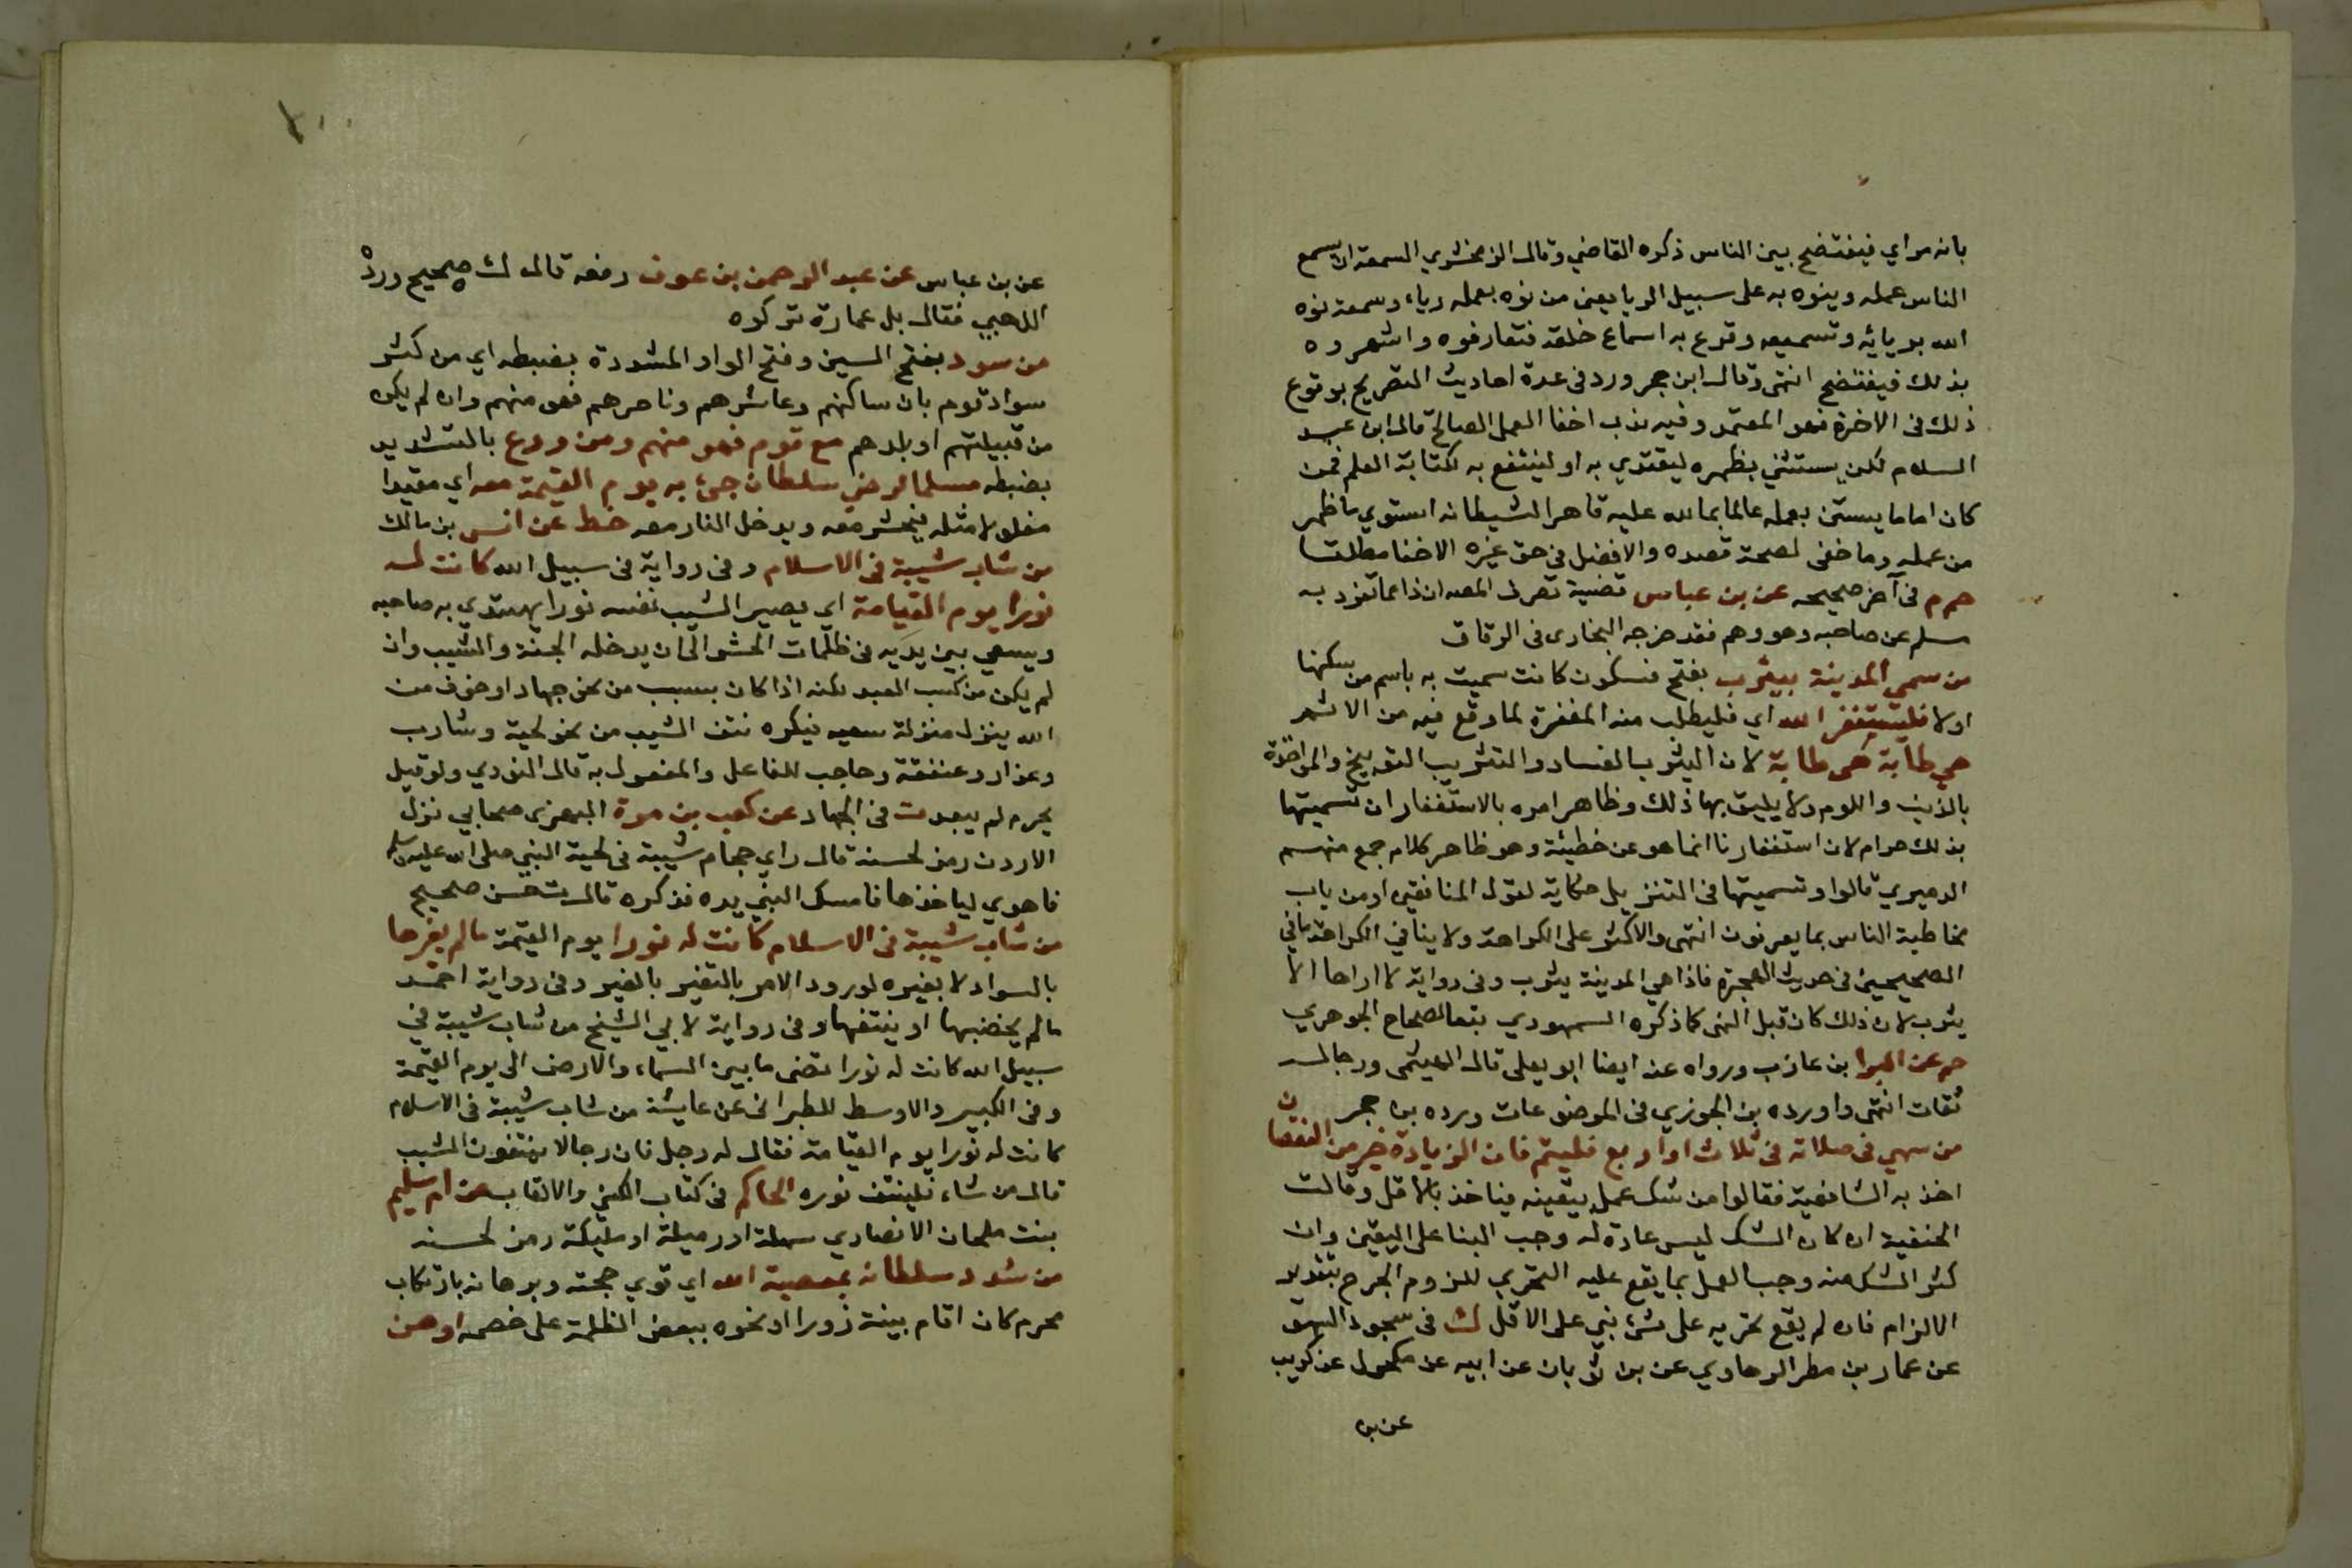 بانه مراي فيفتضح بين الناس ذكره القاضي وقال الزمخشري السمعة ان يسمع
الناس عمله وينوه به على سبيل الريا يعني من نوه بعمله رياء وسمعة نوه
الله بريائه وتسميعه وقرع به اسماع خلقه فتعارفوه واشهروه
بذلك فيفتضح انتهى وقال ابن حجر ورد في عدة احاديث التصريح بوقوع
ذلك في الاخرة فهو المعتمد وفيه ندب اخفا العمل الصالح قال ابن عبد
السلام لكن يستثني يظهره ليقتدي به او لينتفع به لكتابة العلم فمن
كان اماما يستن بعمله عالما بما لله عليه قاهرا لشيطانه استوي ما ظهر
من عمله وما خفى لصحة قصده والافضل في حق غيره الاخفا مطلقا
حم م في آخر صحيحه عن بن عباس قضية تصرف المص ان ذا مما تفرد به
مسلم عن صاحبه وهو وهم فقد خرجه البخارى في الرقاق
من سمي المدينة بيثرب بفتح فسكون كانت سميت به باسم من سكنها
اولا فليستغفر الله اي فليطلب منه المغفرة لما وقع فيه من الاثم
هي طابة هى طابة لان اليثرب الفساد والتثريب التوبيخ والمواخذة
بالذنب واللوم ولا يليق بها ذلك وظاهر امره بالاستغفار ان تسميتها
بذلك حرام لان استغفارنا انما هو عن خطيئة وهو ظاهر كلام جمع منهم
الدميري قالوا وتسميتها في التنزيل حكاية لقول المنافقين او من باب
مخاطبة الناس بما يعرفون انتهى والاكثر على الكراهة ولا ينافي الكراهة ما في
الصحيحين في حديث الهجرة فاذا هي المدينة يثرب وفى رواية لا اراها الا
يثرب لان ذلك كان قبل النهى كما ذكره السمهودي بتعا لصحاح الجوهري
حم عن البرا بن عازب ورواه عنه ايضا ابو يعلى قال الهيثمى ورجاله
ثقات انتهى واورده بن الجوزي في الموضوعات ورده بن حجر
من سهى في صلاته في ثلاث او اربع فليتم فان الزيادة خير من النقصان
اخذ به الشافعية فقالوا من شك عمل بيقينه فياخذ بالاقل وقالت
الحنفية ان كان الشك ليس عادة له وجب البنا على اليقين وان
كثر الشك منه وجب العمل بما يقع عليه التحري للزوم الجرح بتقدير
الالزام فان لم يقع تحريه على شئ بني على الاقل ك في سجود السهو
عن عمار بن مطر الرهاوي عن بن ثوبان عن ابيه عن مكحول عن كريب
عن بن
١٠٠
عن بن عباس عن عبد الرحمن بن عوف رفعه قال ك صحيح ورده
الذهبي فقال بل عمارة تركوه
من سود بفتح السين وفتح الواو المشددة بضبطه اي من كثر
سواد قوم بان ساكنهم وعاشرهم وناصرهم فهو منهم وان لم يكن
من قبيلتهم او بلدهم مع قوم فهو منهم ومن روع بالتشديد
بضبطه مسلما لرضي سلطان جئ به يوم القيمة معه اي مقيدا
مغلولا مثله فيحشر معه ويدخل النار معه خط عن انس بن مالك
من شاب شيبة في الاسلام وفى رواية فى سبيل الله كانت له
نورا يوم القيامة اي يصير الشيب نفسه نورا يهتدي به صاحبه
ويسعي بين يديه في ظلمات الحشر الى ان يدخله الجنة والشيب وان
لم يكن من كسب العبد لكنه اذا كان بسبب من نحو جهاد او خوف من
الله ينزل منزلة سعيه فيكره نتف الشيب من نحو لحية وشارب
وعذار وعنفقة وحاجب للفاعل والمفعول به قال النووي ولو قيل
يحرم لم يبعد ت في الجهاد عن كعب بن مرة البهزى صحابي نزل
الاردن رمز لحسنه قال راي حجام شيبة في لحية النبي صلى الله عليه وسلم
فاهوي لياخذها فامسك النبي يده فذكره قال ت حسن صحيح
من شاب شيبة في الاسلام كانت له نورا يوم القيمة ما لم يغيرها
بالسواد لا بغيره لورود الامر بالتغير بالغير وفى رواية احمد
ما لم يخضبها او ينتفها وفى رواية لابي الشيخ من شاب شيبة في
سبيل الله كانت له نورا تضى ما بين السماء والارض الى يوم القيمة
وفى الكبير والاوسط للطبرانى عن عايشة من شاب شيبة في الاسلام
كانت له نورا يوم القيامة فقال له رجل فان رجالا ينتفون الشيب
قال من شاء فلينتف نوره الحاكم في كتاب الكنى والالقاب عن ام سليم
بنت ملحان الانصاري سهلة او رميلة او مليكة رمز لحسنه
من شدد سلطانه بمعصية الله اي قوي حجته وبرهانه بارتكاب
محرم كان اقام بينة زورا او نحوه ببعض الظلمة على خصمه اوهن